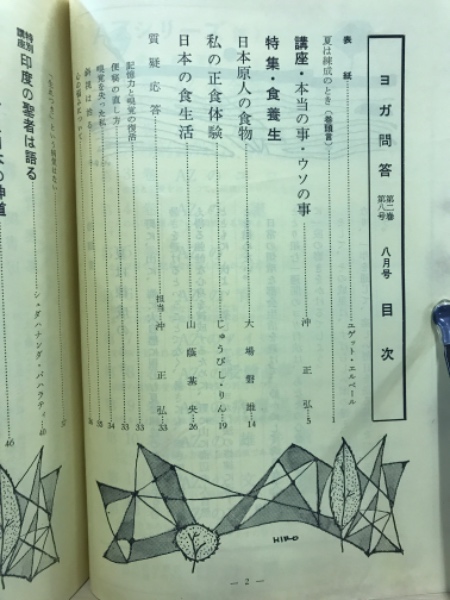 ヨガ問答 第二巻 第八号 八月号 目次
表紙……ユゲット・エルベール
夏は練成のとき(巻頭言)……1
講座・本当の事・ウソの事……沖正弘…5
特集・食養生
日本原人の食物……大場磐雄…14
私の正食体験……じゅうびし・りん…19
日本の食生活……山蔭基央…26
質疑応答……担当 沖正弘…33
記憶力と嗅覚の復活……33
便秘の直し方……34
嗅覚を失った私……35
斜視は治る……36
特別講座 印度の聖者は語る……シュダハナンダ・バハラティ…46
の神道
46
HIRO
— 2 —